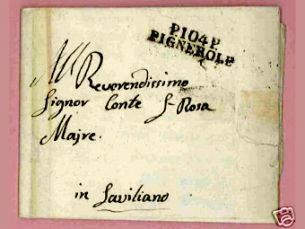 P104P
PIGNEROLP
M Reverendissimo
Signor Conte S. Rosa
Majre.
in Saviliano